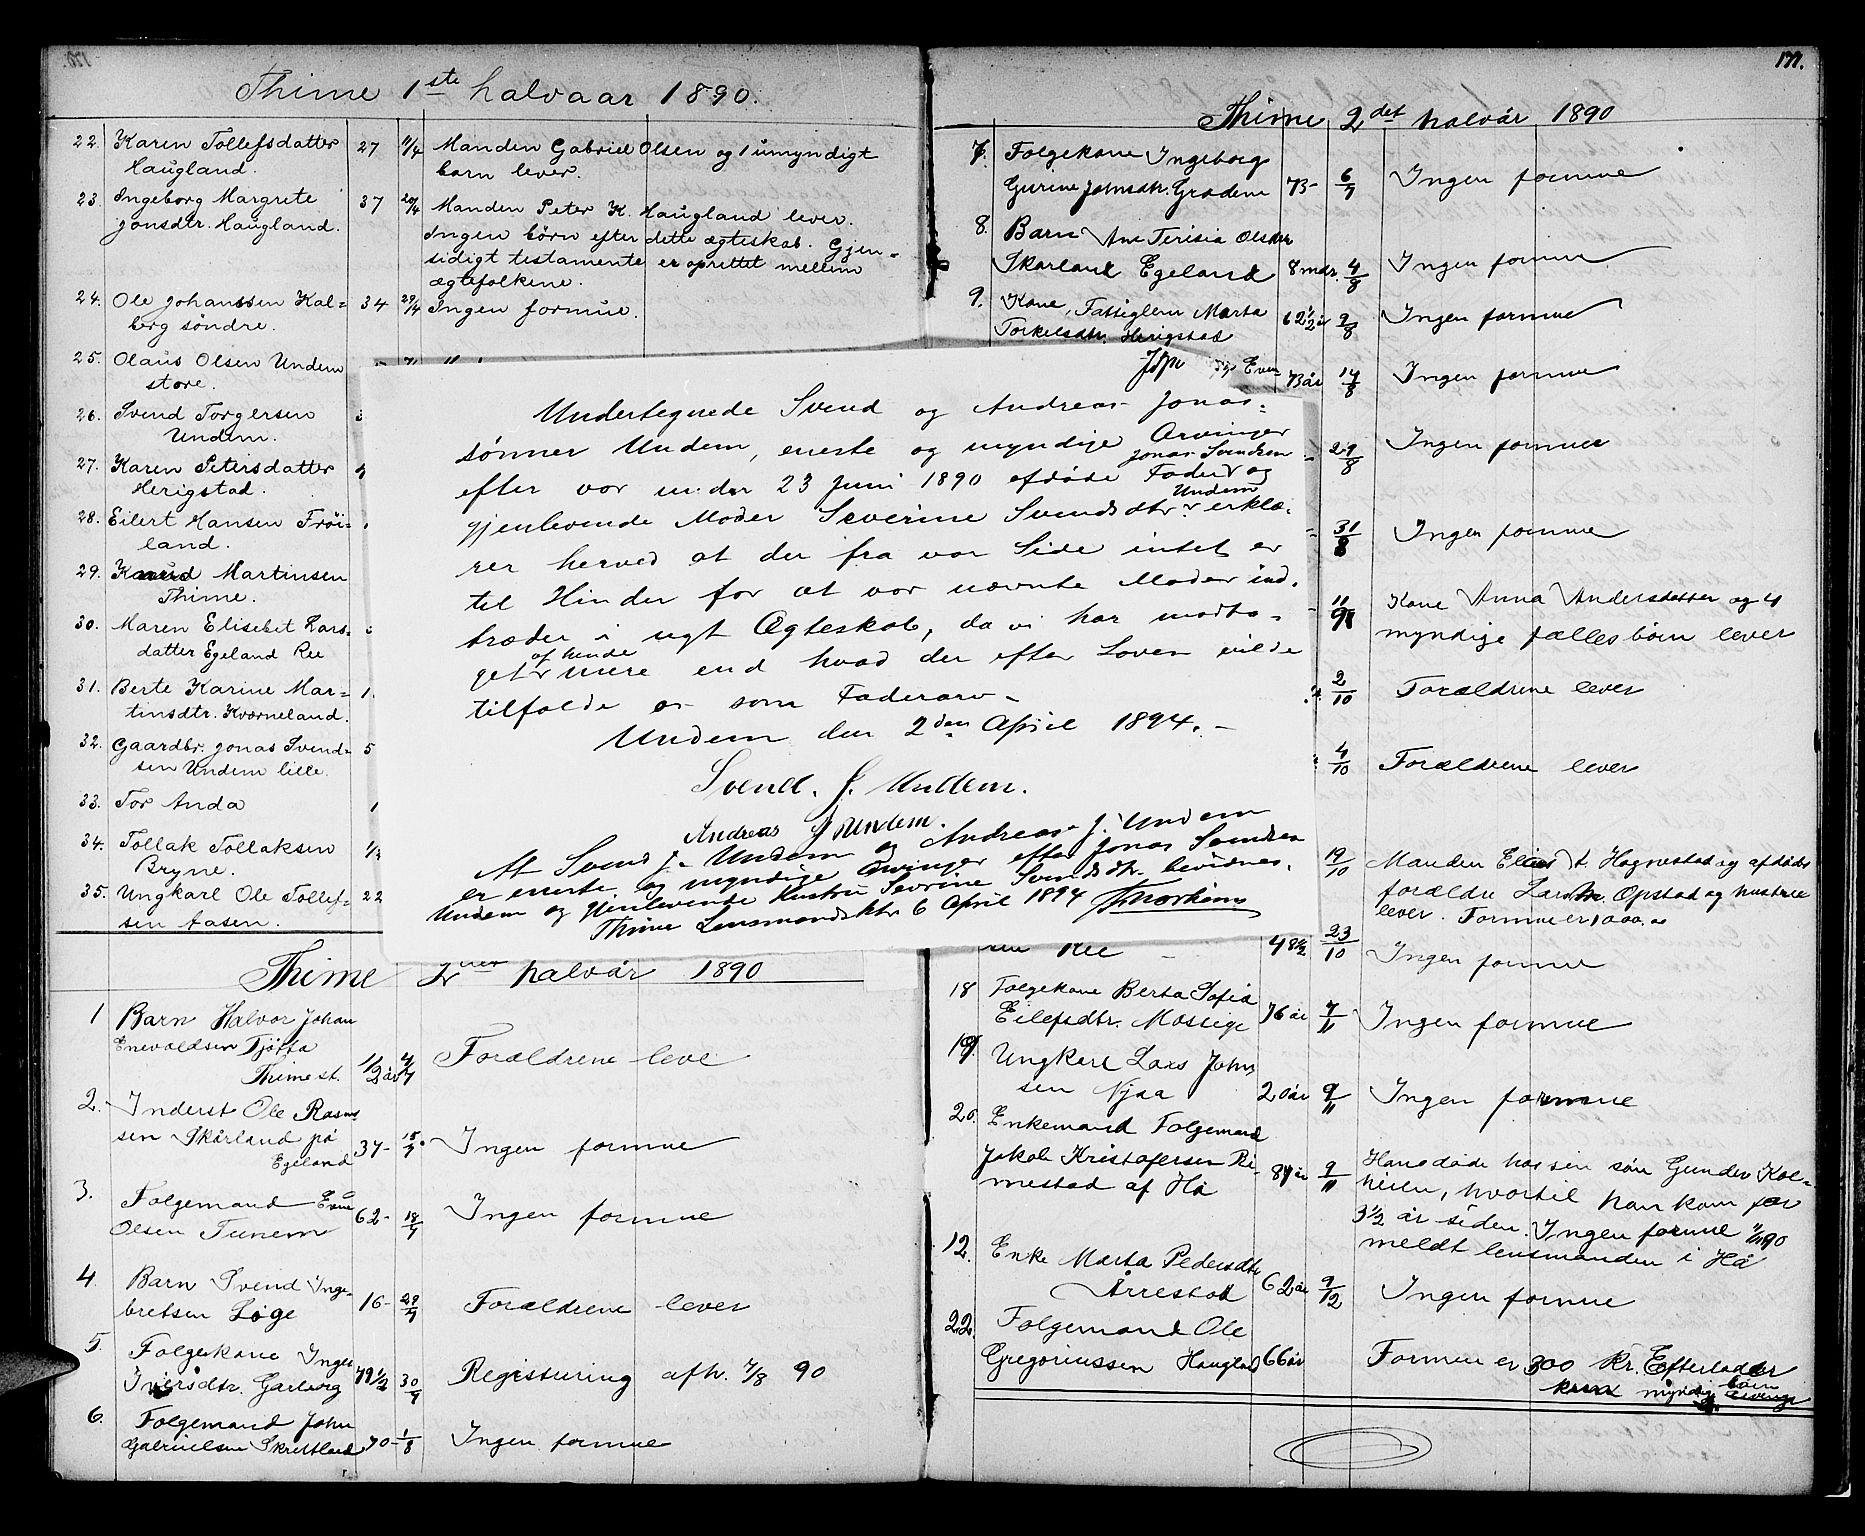 Thime 1ste halvaar 1890.
22. Karen Tollefsdatter 27 11/4 Manden Gabriel Olsen og 1 umyndigt
Haugland. barn lever.
23. Ingeborg Margrete 37 20/4 Manden Peter K. Haugland lever.
Jonsdtr. Haugland. Ingen børn efter dette ægteskab. Gjen-
sidigt testamente er oprettet mellem
ægtefolkene.
24. Ole Johanssen Kal- 34 29/4 Ingen formue.
berg søndre.
25. Olaus Olsen Undem
store.
26. Svend Torgersen
Undem.
27. Karen Petersdatter
Herigstad.
28. Eilert Hansen Frøi-
land.
29. Knud Martinsen
Thime.
30. Maren Elisebet Lars-
datter Egeland Ree
31. Berte Karine Mar- 1
tinsdtr. Kverneland.
32. Gaardbr. Jonas Svend- 5
sen Undem lille.
33. Tor Anda 1
34. Tollak Tollaksen
Bryne.
35. Ungkarl Ole Tollef- 22
sen Aasen.
Thime 2det halvår 1890
1 Barn Halvor Johan
Enevoldsen Tjøtta
Thime st. 1/2 år 4/7 Forældrene leve
2. Inderst Ole Rasmus
sen Skårland på 37- 15/7 Ingen formue
Egeland
3. Folgemand Enue
Olsen Tunem 62- 18/7 Ingen formue
4 Barn Svend Inge-
bretsen Løge 16- 29/7 Forældrene lever
5. Folgekone Inger
Iversdtr. Garborg 79 1/2 30/7 Registrering afh. 7/8 90
6. Folgemand John
Gabrielsen Skrettland 70- 1/8 Ingen formue
Undertegnede Svend og Andreas Jonas-
sønner Undem, eneste og myndige Arvinger
efter vor under 23 Juni 1890 afdøde Fader Jonas Svendsen og
gjenlevende Moder Severine Svendsdtr. Undem erklæ-
rer herved at der fra vor Side intet er
til Hinder for at vor nævnte Moder ind-
træder i nyt Ægteskab, da vi har modta-
get af hende mere end hvad der efter Loven vilde
tilfalde os som Faderarv.
Undem den 2den April 1894.
Svend. J. Undem.
Andreas J Undem.
At Svend J. Undem og Andreas J. Undem
er eneste og myndige Arvinger efter Jonas Svendsen
Undem og gjenlevende Hustru Sevrine Svendsdtr. bevidnes.
Thime Lensmandsktr 6 April 1894
177.
Thime 2det halvår 1890
7. Folgekone Ingeborg
Gurine Johnsdtr. Grødem 73- 6/7 Ingen formue
8. Barn Ane Terisia Olsdtr
Skarland Egeland 8 mdr. 4/8 Ingen formue
9. Kone, Fattiglem Marta
Torkelsdtr. Herigstad 62 1/2 år 9/8 Ingen formue
73 år 14/8 Ingen formue
29/8 Ingen formue
31/8 Ingen formue
11/9 Kone Anna Andersdatter og 4
myndige fællesbørn lever
2/10 Forældrene lever
4/10 Forældrene lever
19/10 Manden Elias t. Hognestad og afdødes
forældre Lars M. Opstad og hustrue
lever. Formue er 1000.00
sen Ree 48 1/2 23/10 Ingen formue
18 Folgekone Berta Sofia
Eilefsdtr. Mossige 76 år 7/11 Ingen formue
19 Ungkarl Lars John
sen Njaa 20 år 9/11 Ingen formue
20 Enkemand Folgemand
Jakob Kristofersen Ri- 87 år 9/11 Han døde hos sin søn Gunder Kol-
mestad af Hå heien, hvortil han kom for
3 1/2 år siden. Ingen formue 11/11 90
meldt lensmanden i Hå
12. Enke Marta Pedersdtr
Årrestad 62 år 9/12 Ingen formue
22. Folgemand Ole
Gregoriussen Haugland 66 år Formue er 300 Kr. Efterlader
kun myndig børn